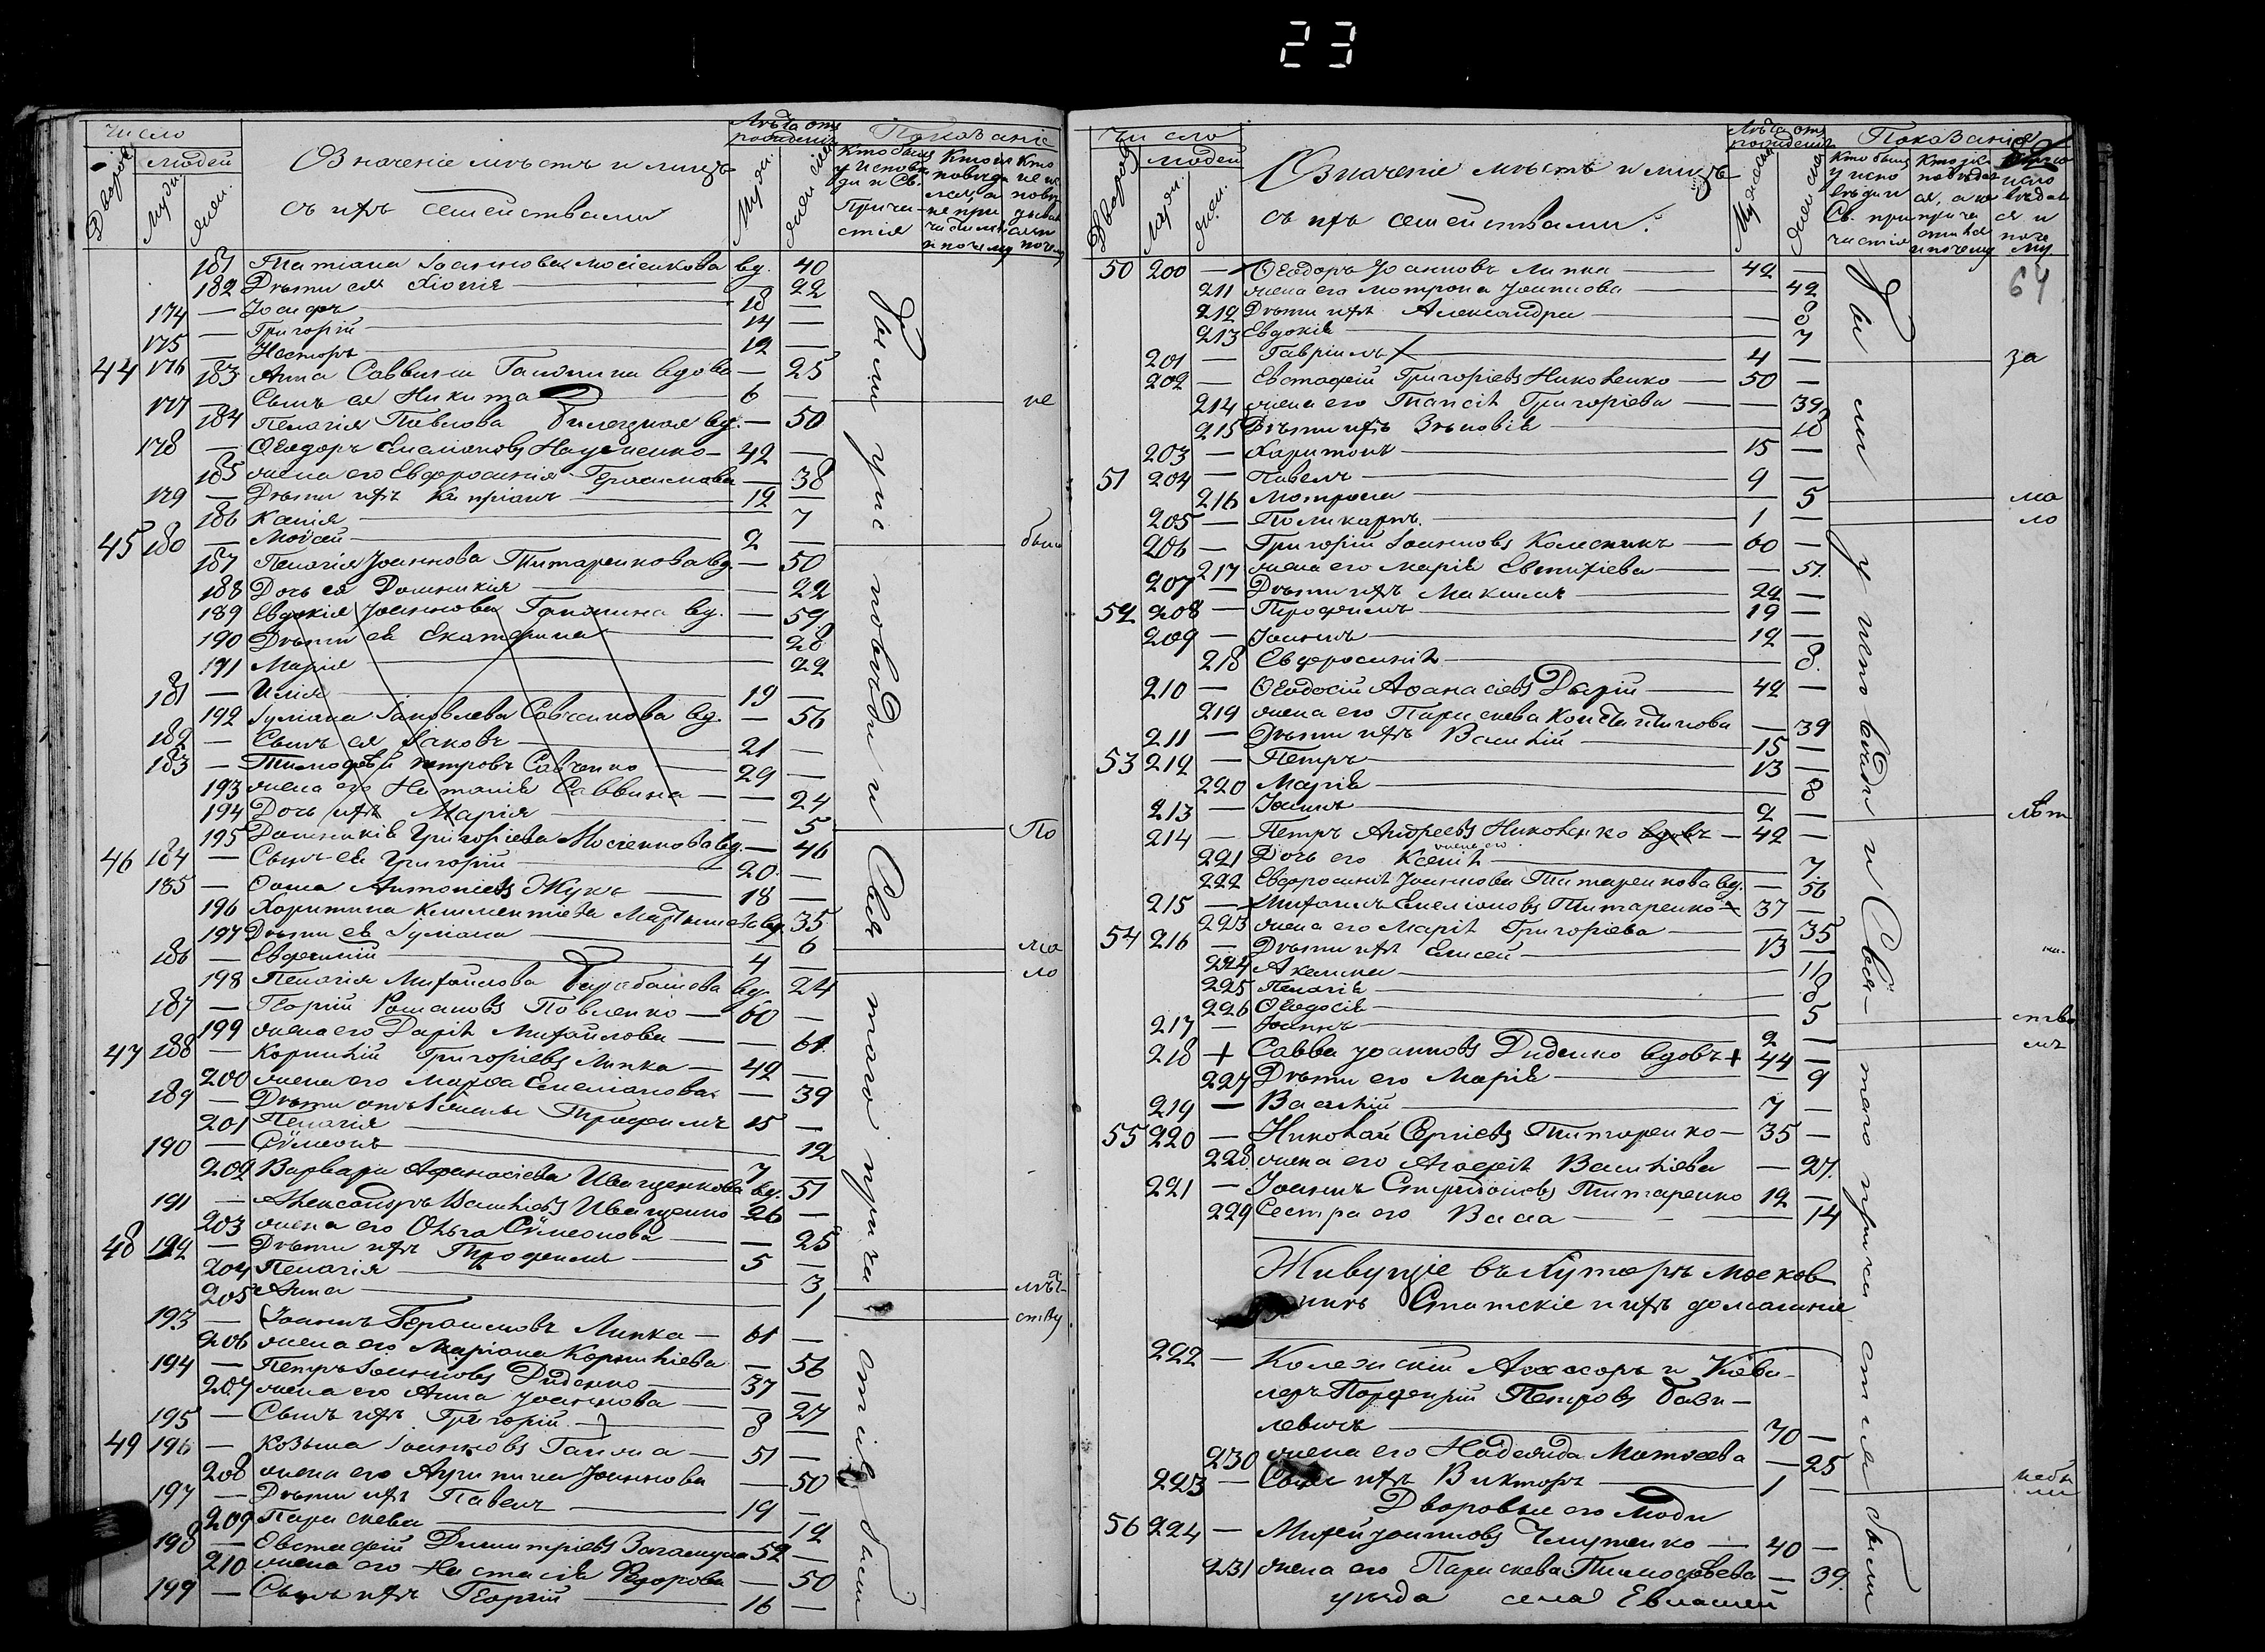 23
Число
Дворовъ
Людей
Мужи.
Жен.
Означеніе мѣстъ и лицъ
съ ихъ семействами
Лѣта отъ рожденія
Муж.
Женска
Показаніе
Кто былъ у исповѣди и Св. Причастія
Кто исповѣдался, а не причастился и почему
Кто не исповѣдывался и почему
181 Татіана Іоаннова Мосіенкова вд. 40
182 Дѣти ея Хіонія 22
174 — Іосифъ 18 —
175 — Григорій 14 —
176 — Несторъ 12 —
44 183 Анна Саввина Гапонина вдова — 25
177 — Сынъ ея Никита 6 — не
184 Пелагія Павлова вд. — 50
178 — Ѳеодоръ Емеліановъ Науменко — 42 —
185 жена его Евфросинія Герасимова — 38
179 — Дѣти ихъ Кипріанъ 12 —
186 Ксенія 7
45 180 — Моѵсей 2 — было
187 Пелагія Іоаннова Титаренкова вд. — 50
188 Дочь ея Домникія 22
189 Евдокія Іоаннова Гапонина вд. — 59
190 Дѣти ея Екатерина 28
191 Марія 22
181 — Илія 19 —
192 Іуліана Іаковлева Савченкова вд. — 56
182 — Сынъ ея Іаковъ 21 —
183 — Тимоѳей Петровъ Савченко 29 —
193 жена его Наталія Саввина — 24
194 Дочь ихъ Марія 5
195 Домникія Григоріева Мосіенкова вд. — 46 По
46 184 — Сынъ ея Григорій 20 —
185 — Сава Антоніевъ Жукъ 18 —
196 Харитина Климентіева вд. 35
197 Дѣти ея Іуліана 6 ма
186 — Евфимій 4 — ло
198 Пелагія Михайлова Барабашева вд. 24
187 — Георгій Романовъ Павленко — 60 —
199 жена его Дарія Михайлова — 61
47 188 — Корнилій Григоріевъ Липка — 42 —
200 жена его Марѳа Емеліанова — 39
189 — Дѣти отъ 1 жены Трофимъ 15 —
201 Пелагія 12
190 — Сѵмеонъ 7 —
202 Варвара Афанасіева Иващенкова вд. 51
191 — Александръ Василіевъ Иващенко 26 —
203 жена его Ольга Сѵмеонова — 25
48 192 — Дѣти ихъ Трофимъ 5 —
204 Пелагія 3 лѣт
205 Анна 1 ству
193 — Іоаннъ Герасимовъ Липка — 61 —
206 жена его Маріана Корниліева — 56
194 — Петръ Іоанновъ Диденко — 37 —
207 жена его Анна Іоаннова — 27
195 — Сынъ ихъ Григорій 8 —
49 196 — Козьма Іоанновъ Гапона — 51 —
208 жена его Агрипина Іоаннова — 50
197 — Дѣти ихъ Павелъ 19 —
209 Параскева 12
198 — Евстафій Димитріевъ 52 —
210 жена его Настасія Ѳедорова — 50
199 — Сынъ ихъ Георгій 16 —
Были у исповѣди и Свя таго причастія были
Число
Дворовъ
Людей
Мужи.
Жен.
Означеніе мѣстъ и лицъ
съ ихъ семействами.
Лѣта отъ рожденія
Мужеска
Женска
Показанія
Кто былъ у исповѣди и Св. причастія
Кто исповѣдался, а не причастился и почему
64
50 200 — Ѳеодоръ Іоанновъ Липка 42 —
211 жена его Мотрона Іоаннова 42
212 Дѣти ихъ Александра 8
213 Евдокія 7
201 — Гавріилъ 4 — за
202 — Евстафій Григоріевъ Николенко — 50 —
214 жена его Таисія Григоріева — 39
215 Дѣти ихъ Зѣновія 18
203 — Харитонъ 15 —
51 204 — Павелъ 9 —
216 Мотрона 5 ма
205 — Поликарпъ 1 — ло
206 — Григорій Іоанновъ Колесникъ — 60 —
217 жена его Марія Евтихіева — 51.
207 — Дѣти ихъ Максимъ 22 —
52 208 — Трофимъ 19 —
209 — Іоаннъ 12 —
218 Евфросинія 8.
210 — Ѳеодосій Аѳанасіевъ Дырій 42 —
219 жена его Параскева Константинова — 39
211 — Дѣти ихъ Василій 15 —
53 212 — Петръ 13 —
220 Марія 8
213 — Іоаннъ 2 — лѣт
214 — Петръ Андреевъ Николенко вдовъ — 42 —
жена его
221 Дочь его Ксенія 7.
222 Евфросинія Іоаннова Титаренкова вд. — 56
215 — Михаилъ Емеліановъ Титаренко 37 —
223 жена его Марія Григоріева — 35
54 216 — Дѣти ихъ Елисей 13 —
224 Акелина 10
225 Пелагія 8
226 Ѳеодосія 5 ство
217 — Іоаннъ 2 — мъ
218 + Савва Іоанновъ Диденко вдовъ + 44 —
227 Дѣти его Марія — 9
219 — Василій 7 —
55 220 — Николай Сергіевъ Титаренко — 35 —
228 жена его Агафія Василіева — 27.
221 — Іоаннъ Спиридоновъ Титаренко 12 —
229 Сестра его Васса — 14
Живущіе въ хуторѣ Москов
Статскіе и ихъ домашніе
222 — Колежскій Ассесоръ и Кава-
леръ Порфирій Петровъ Бази-
левичъ 70 —
230 жена его Надежда Матѳеева — 25
223 — Сынъ ихъ Викторъ 1 — небы ли
Дворовые его люди
56 224 — Михей Іоанновъ — 40 —
231 жена его Параскева Тимоѳеева — 39.
уѣзда села Евлашей
Были у исповѣди и Свя- таго причастія были